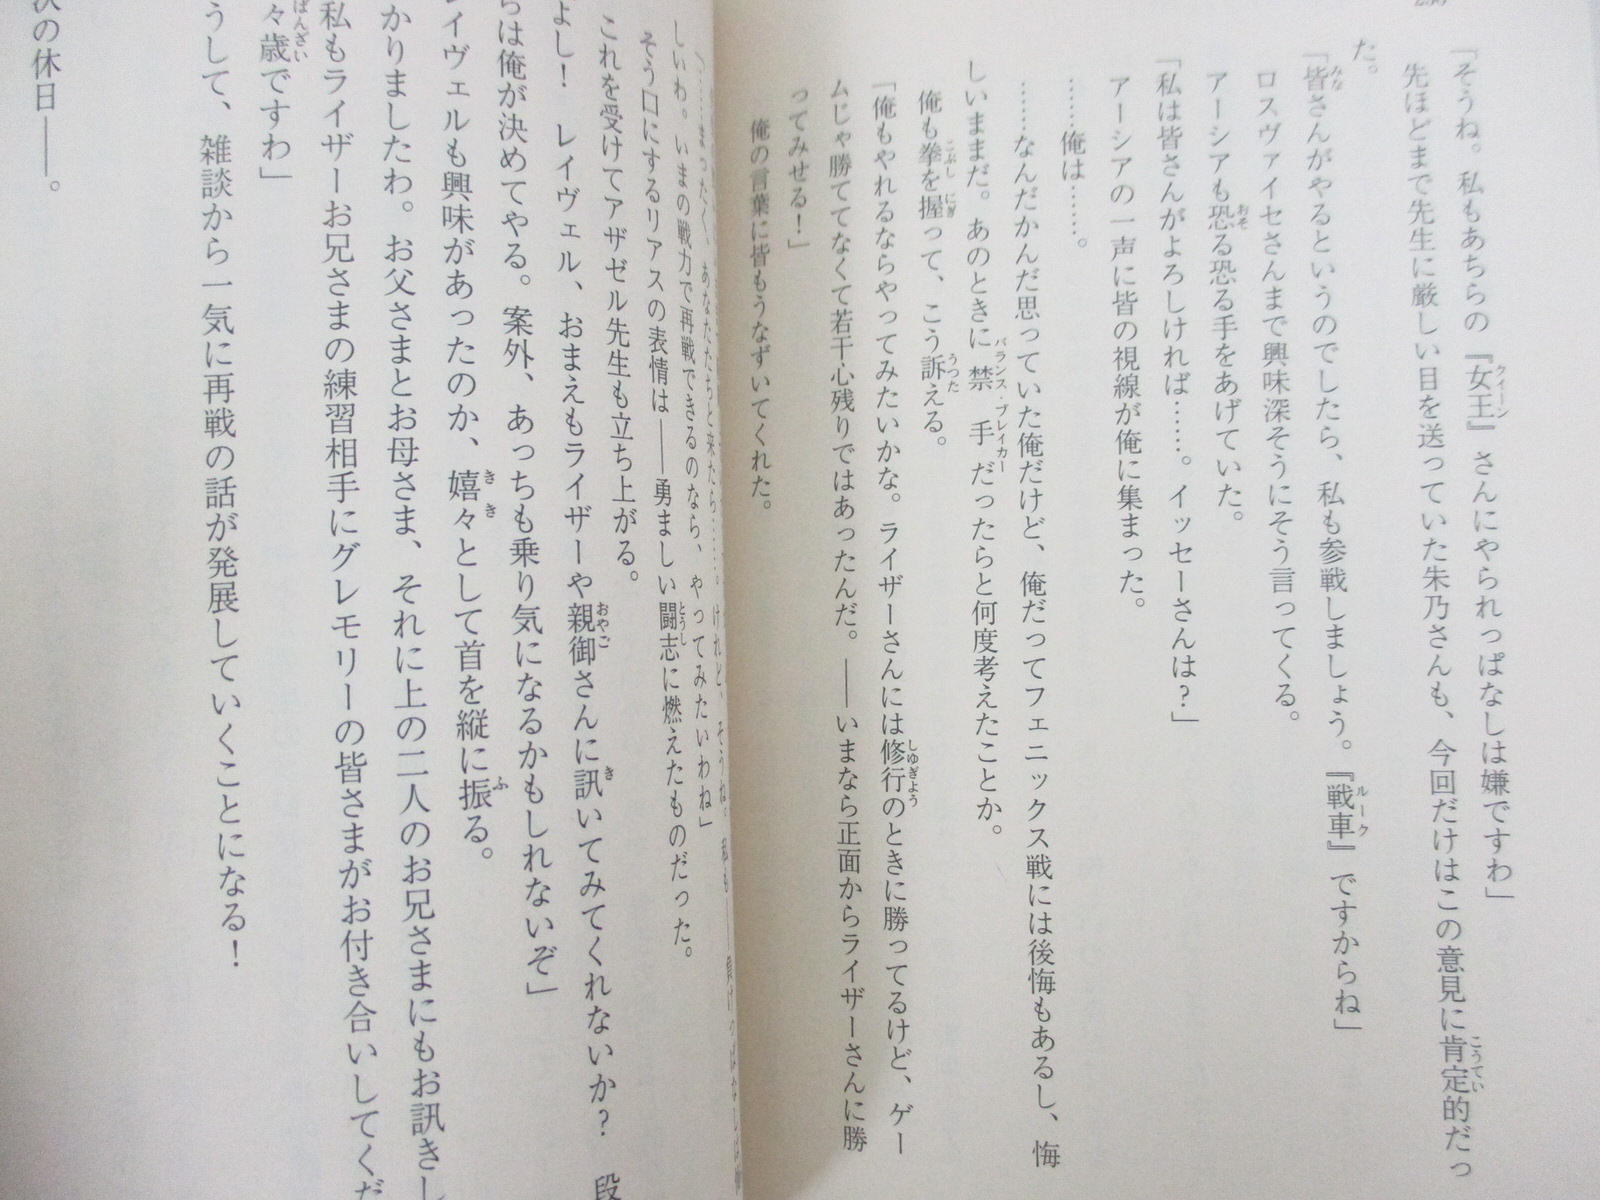 「そうね。私もあちらの『女王』さんにやられっぱなしは嫌ですわ」
先ほどまで先生に厳しい目を送っていた朱乃さんも、今回だけはこの意見に肯定的だっ
た。
「皆さんがやるというのでしたら、私も参戦しましょう。『戦車』ですからね」
ロスヴァイセさんまで興味深そうにそう言ってくる。
アーシアも恐る恐る手をあげていた。
「私は皆さんがよろしければ……。イッセーさんは？」
アーシアの一声に皆の視線が俺に集まった。
……俺は……。
……なんだかんだ思っていた俺だけど、俺だってフェニックス戦には後悔もあるし、悔
しいままだ。あのときに禁手だったらと何度考えたことか。
俺も拳を握って、こう訴える。
「俺もやれるならやってみたいかな。ライザーさんには修行のときに勝ってるけど、ゲー
ムじゃ勝ててなくて若干心残りではあったんだ。――いまなら正面からライザーさんに勝
ってみせる！」
俺の言葉に皆もうなずいてくれた。
「……まったく、あなたたちと来たら……。けれど、そうね。私も――負けっぱなしは
しいわ。いまの戦力で再戦できるのなら、やってみたいわね」
そう口にするリアスの表情は――勇ましい闘志に燃えたものだった。
これを受けてアザゼル先生も立ち上がる。
よし！　レイヴェル、おまえもライザーや親御さんに訊いてみてくれないか？　段
らは俺が決めてやる。案外、あっちも乗り気になるかもしれないぞ」
イヴェルも興味があったのか、嬉々として首を縦に振る。
かりましたわ。お父さまとお母さま、それに上の二人のお兄さまにもお訊きし
私もライザーお兄さまの練習相手にグレモリーの皆さまがお付き合いしてくだ
々歳ですわ」
うして、雑談から一気に再戦の話が発展していくことになる！
の休日――。